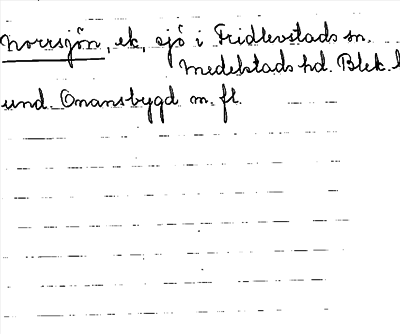 Norrsjön, ek, sjö i Fridlevstads sn.
Medelstads hd. Blek. l
und. Onansbygd m. fl.